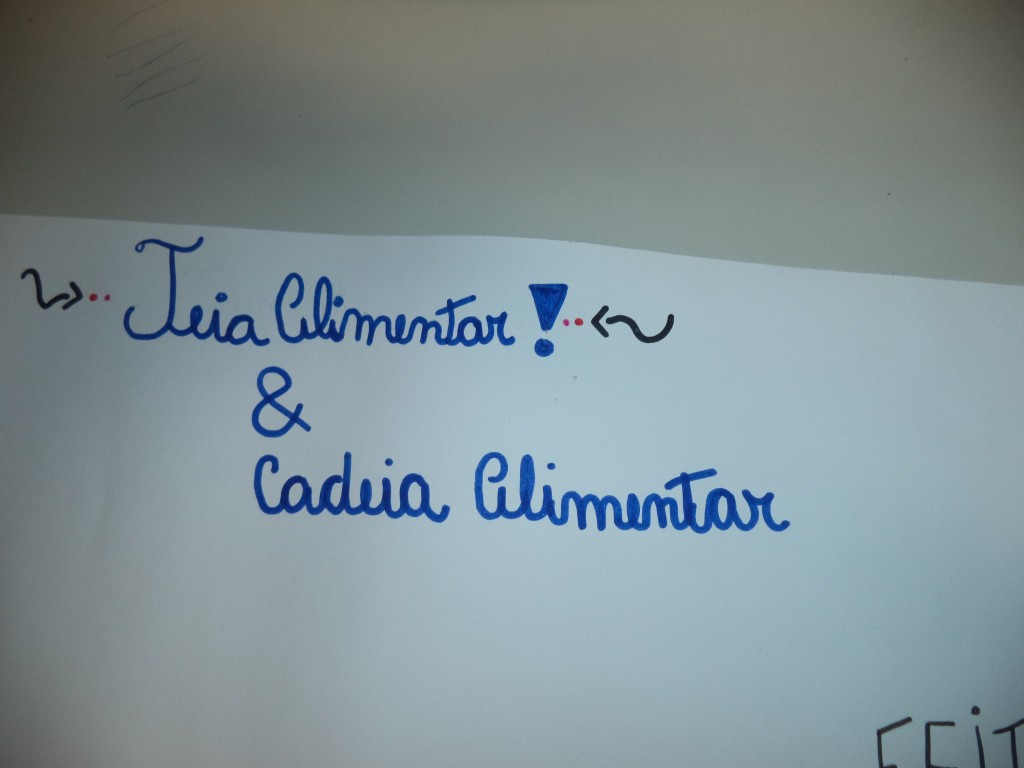 Teia Alimentar!
&
Cadeia Alimentar
FEIT